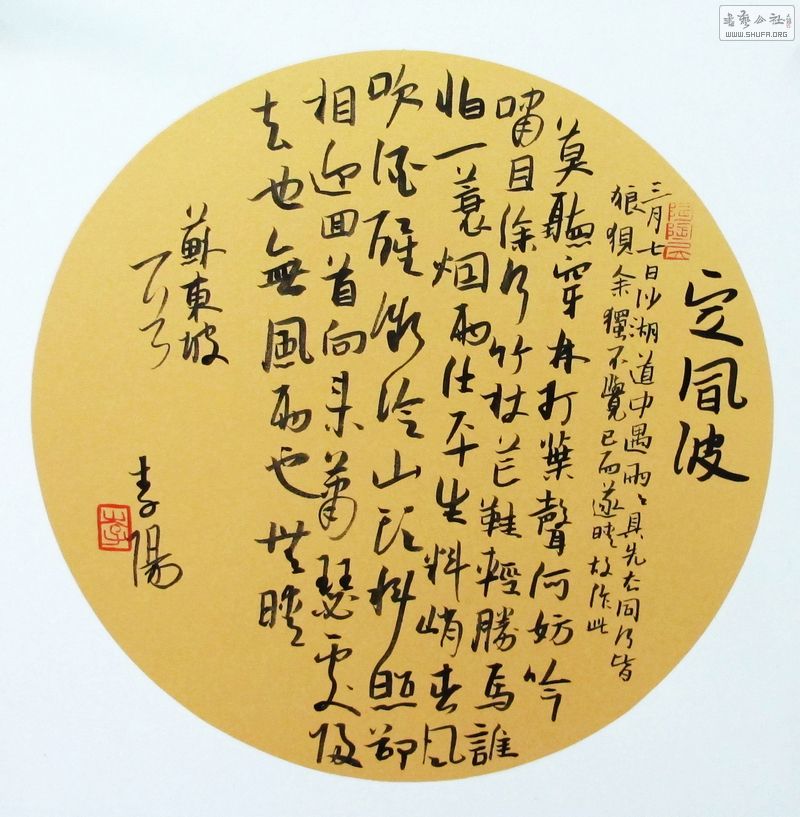 定風波
三月七日沙湖道中遇雨〻具先去同行皆
狼狽余獨不覺已而遂晴故作此
莫聽穿林打葉聲何妨吟
嘯且徐行竹杖芒鞋輕勝馬誰
怕一蓑烟雨任平生料峭春風
吹酒醒微冷山頭斜照卻
相迎回首向來蕭瑟處歸
去也無風雨也無晴
蘇東坡
李陽
書藝公社
WWW.SHUFA.ORG